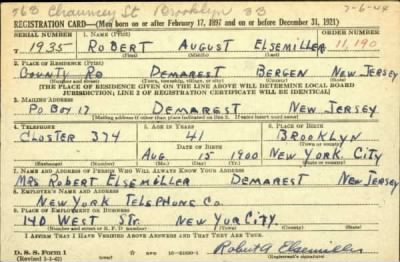 768 Chauncey St Brooklyn 33 7-6-44
REGISTRATION CARD—(Men born on or after February 17, 1897 and on or before December 31, 1921)
SERIAL NUMBER 1. NAME (Print) ORDER NUMBER
T 1935 ROBERT AUGUST ELSEMILLER 11,190
(First) (Middle) (Last)
2. PLACE OF RESIDENCE (Print)
COUNTY RD DEMAREST BERGEN NEW JERSEY
(Number and street) (Town, township, village, or city) (County) (State)
[THE PLACE OF RESIDENCE GIVEN ON THE LINE ABOVE WILL DETERMINE LOCAL BOARD
JURISDICTION; LINE 2 OF REGISTRATION CERTIFICATE WILL BE IDENTICAL]
3. MAILING ADDRESS
PO BOX 17 DEMAREST NEW JERSEY
[Mailing address if other than place indicated on line 2. If same insert word same]
4. TELEPHONE 5. AGE IN YEARS 6. PLACE OF BIRTH
CLOSTER 374 41 BROOKLYN
DATE OF BIRTH (Town or county)
AUG 15 1900 NEW YORK CITY
(Exchange) (Number) (Mo.) (Day) (Yr.) (State or country)
7. NAME AND ADDRESS OF PERSON WHO WILL ALWAYS KNOW YOUR ADDRESS
MRS ROBERT ELSEMILLER DEMAREST NEW JERSEY
8. EMPLOYER'S NAME AND ADDRESS
NEW YORK TELEPHONE CO.
9. PLACE OF EMPLOYMENT OR BUSINESS
140 WEST STR. NEW YOR CITY.
(Number and street or R. F. D. number) (Town) (County) (State)
I AFFIRM THAT I HAVE VERIFIED ABOVE ANSWERS AND THAT THEY ARE TRUE.
D. S. S. Form 1
(Revised 1-1-42) (over) 16—21630-1 Robert A Elsemiller
(Registrant's signature)